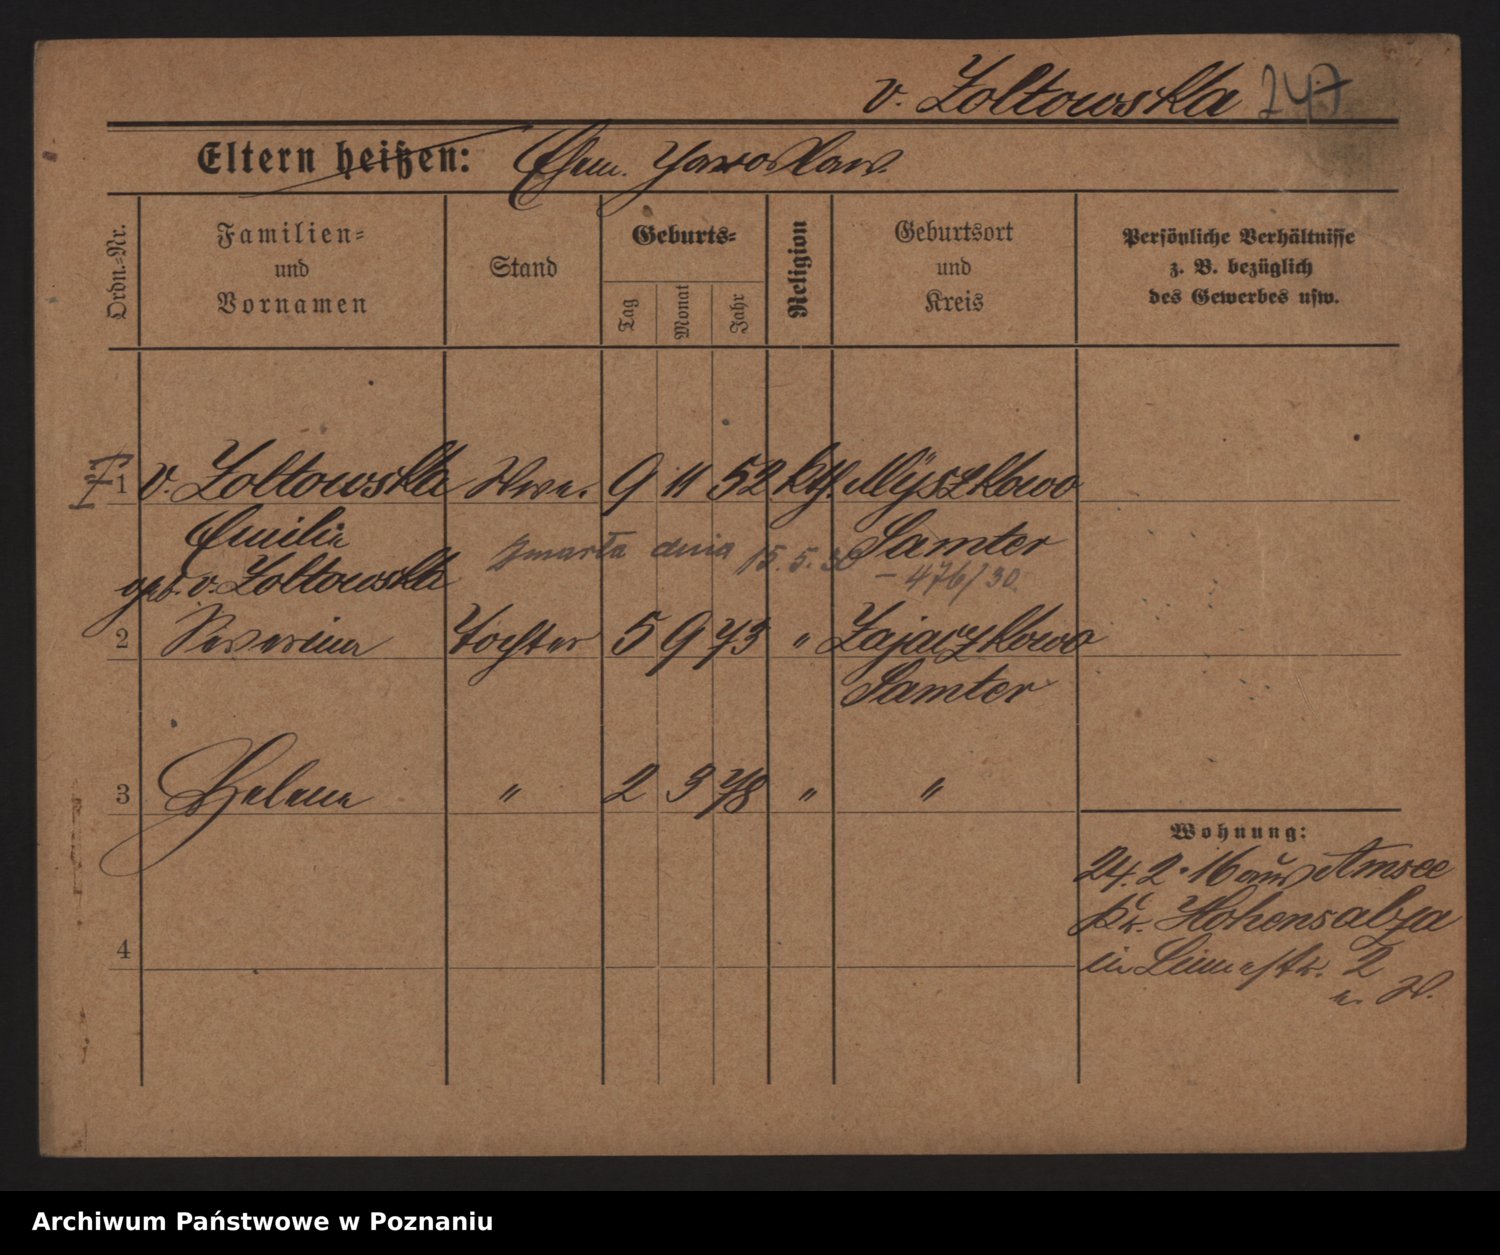 v. Zoltowska 247
Eltern heißen: Ehem. Yaroslaw.
Ordn.-Nr.
Familien-
und
Vornamen
Stand
Geburts-
Tag
Monat
Jahr
Religion
Geburtsort
und
Kreis
Persönliche Verhältnisse
z. B. bezüglich
des Gewerbes usw.
1 v. Zoltowska Wwe. 9 11 52 kth. Myszkowo
Emilie Samter
geb. v. Zoltowska zmarła dnia 15.5.30 – 476/30
2 Severina Tochter 5 9 73 " Zajaczkowo
Samter
3 Helene " 2 3 78 " "
4
Wohnung:
24. 2. 16 aus Amsee
Kr. Hohensalza
in 2